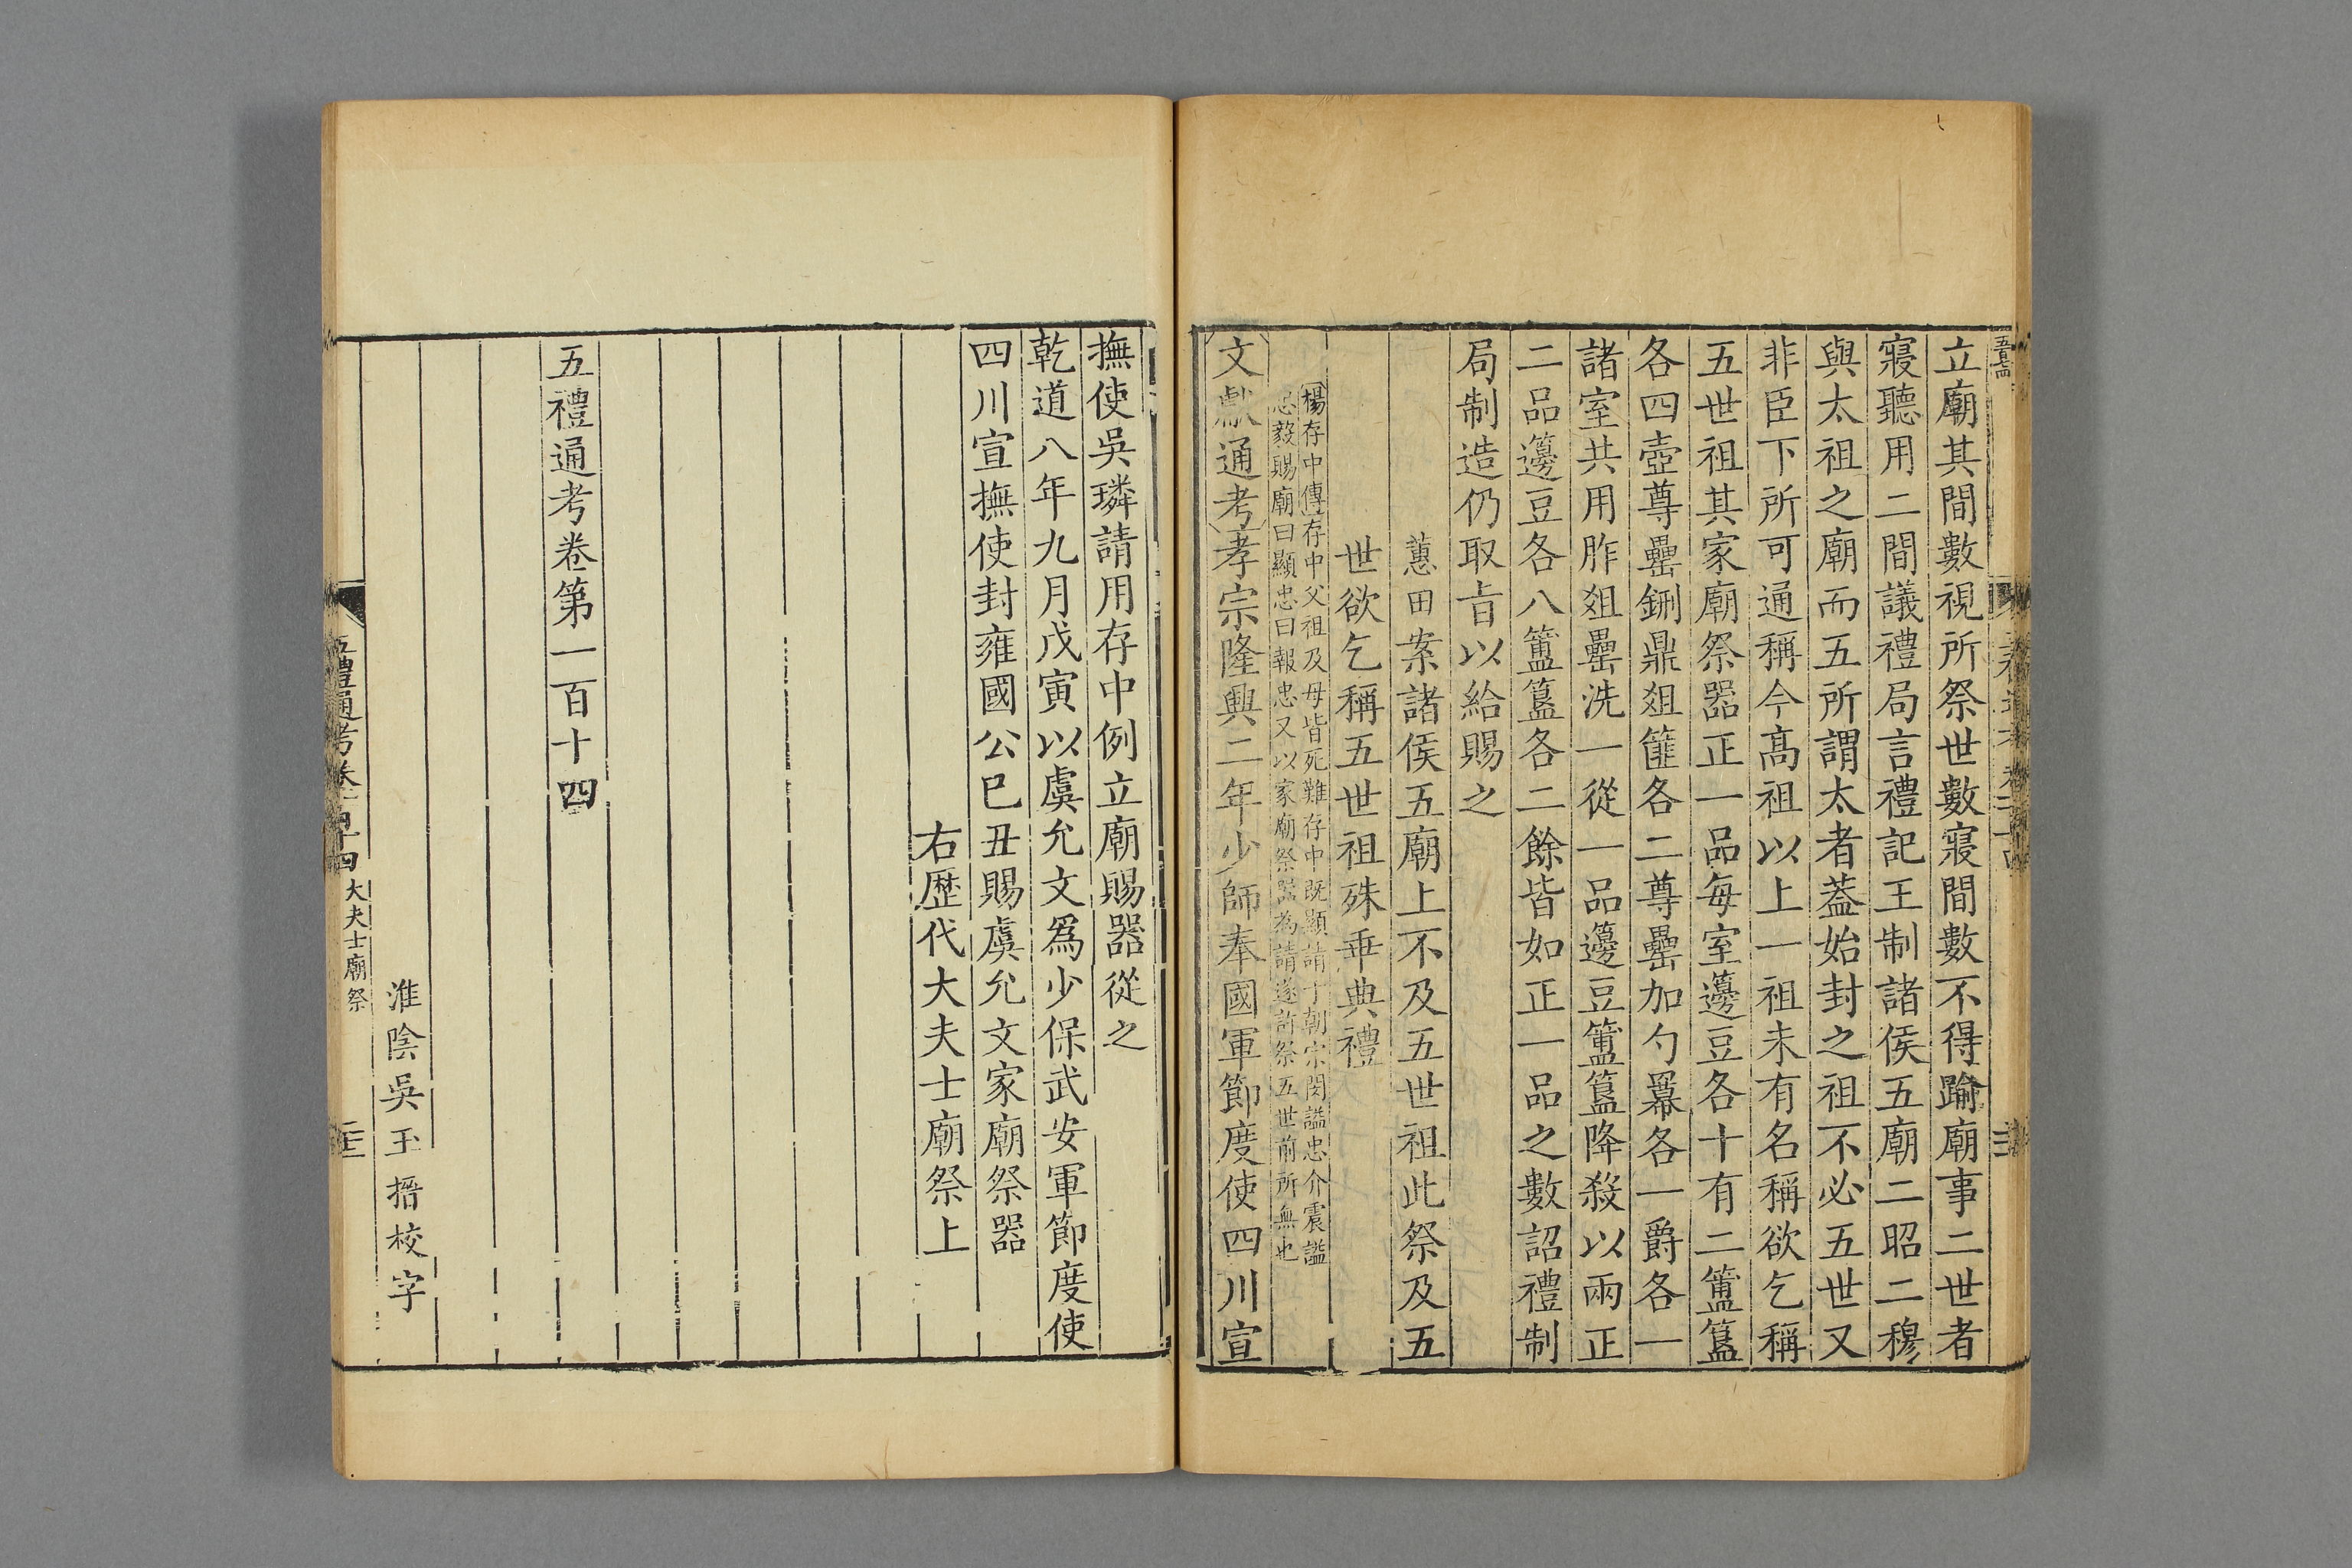 立廟其間數視所祭世數寢間數不得踰廟事二世者
寢聽用二間議禮局言禮記王制諸侯五廟二昭二穆
與太祖之廟而五所謂太者蓋始封之祖不必五世又
非臣下所可通稱今高祖以上一祖未有名稱欲乞稱
五世祖其家廟祭器正一品每室籩豆各十有二簠簋
各四壺尊罍鉶鼎俎篚各二尊罍加勺冪各一爵各一
諸室共用胙俎罍洗一從一品籩豆簠簋降殺以兩正
二品籩豆各八簠簋各二餘皆如正一品之數詔禮制
局制造仍取旨以給賜之
蕙田案諸侯五廟上不及五世祖此祭及五
世欲乞稱五世祖殊乖典禮
楊存中傳存中父祖及母皆死難存中既顯請于朝宗閔謚忠介震謚
忠毅賜廟曰顯忠曰報忠又以家廟祭器為請遂許祭五世前所無也
文獻通考孝宗隆興二年少師奉國軍節度使四川宣
撫使吳璘請用存中例立廟賜器從之
乾道八年九月戊寅以虞允文爲少保武安軍節度使
四川宣撫使封雍國公巳丑賜虞允文家廟祭器
右歷代大夫士廟祭上
五禮通考卷第一百十四
淮陰吳玉搢校字
五禮通考卷一百十四
大夫士廟祭